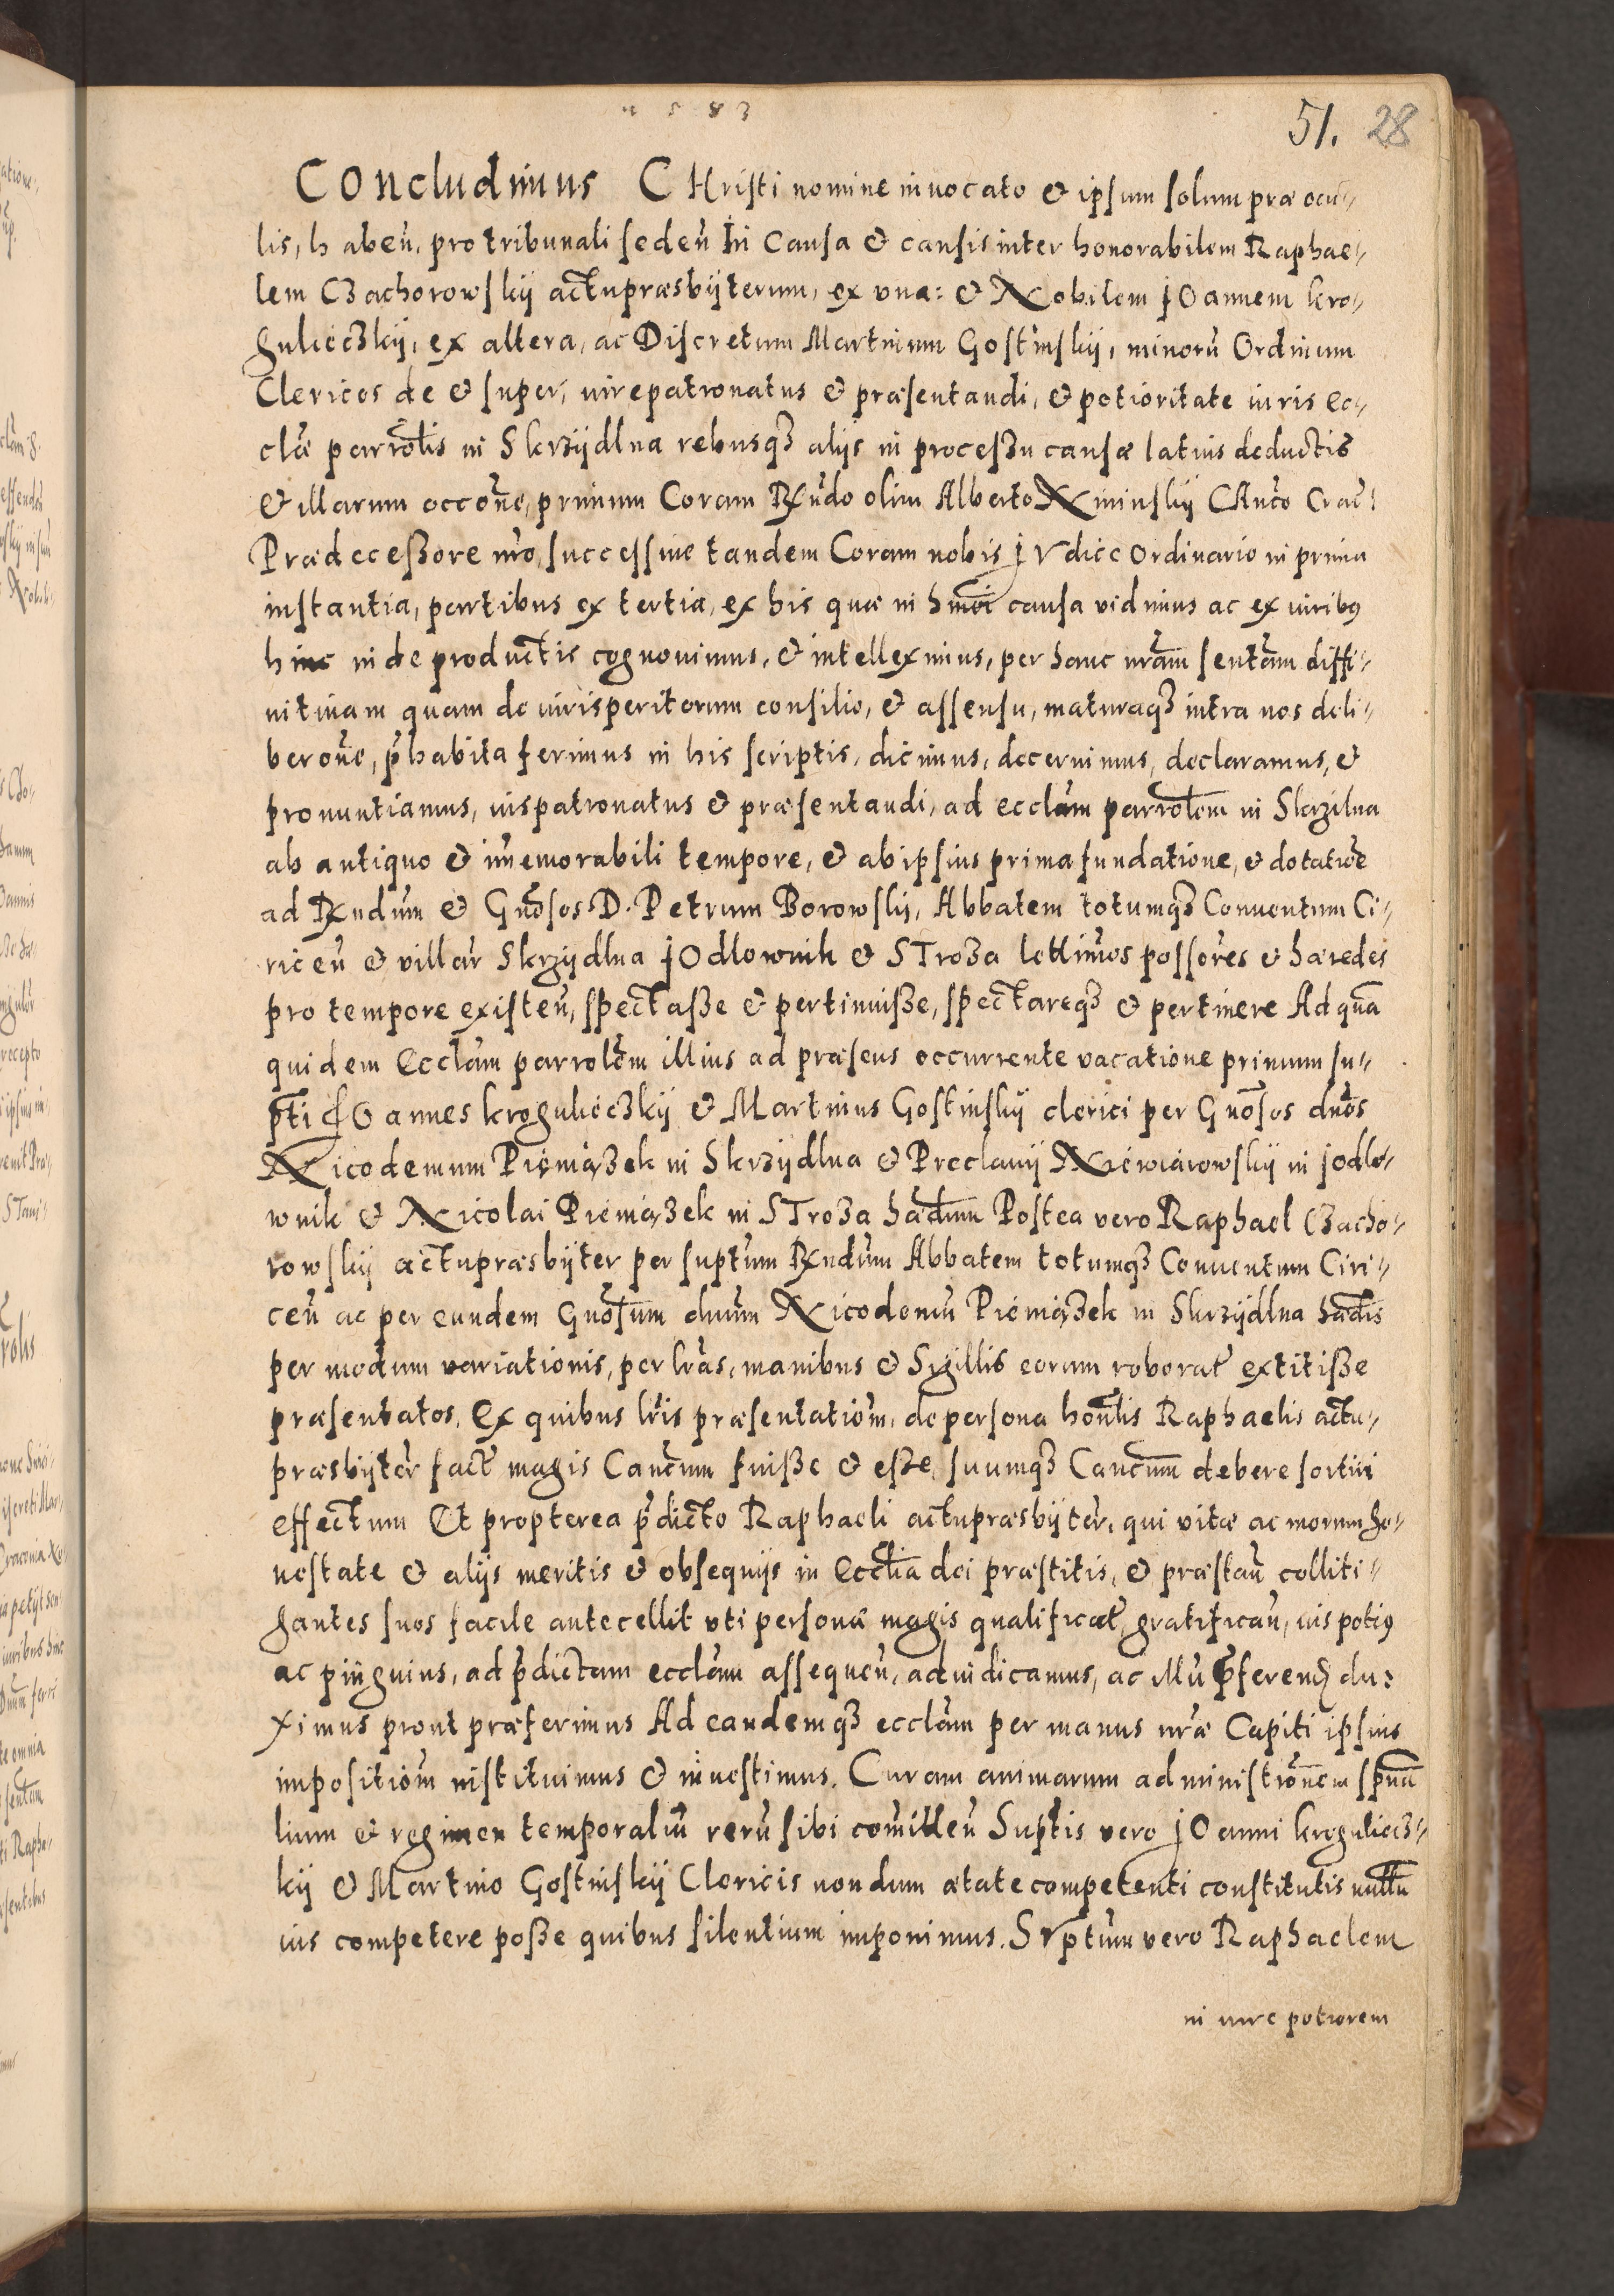 1583
51. 28
Concludimus CHristi nomine invocato & ipsum solum præ ocu-
lis, habeñ, pro tribunali sedeñ In Causa & causis inter honorabilem Raphae-
lem Czachorowskÿ actupræsbÿterum, ex una: & Nobilem JOannem kro-
gulieczkÿ, ex altera, ac Discretum Martinum Gostinskÿ, minorũ Ordinum
Clericos de & super, iurepatronatus & præsentandi, & potioritate iuris Ec-
clæ parrolis in Skrzÿdlna rebusqʒ alijs in processu causæ latius deductis
& illarum occone, primum Coram Rndo olim Alberto Xminskÿ CAnco Crac:
Prædecessore nro, successive tandem Coram nobis JVdice Ordinario in prima
instantia, partibus ex tertia, ex his quæ in hmoi causa vidimus ac ex iuribꝰ
hinc inde productis cognovimus, & intelleximus, per hanc nram sentam diffi-
nitivam quam de iurisperitorum consilio, & assensu, maturaqʒ intra nos deli-
berone, p̃habita ferimus in his scriptis, dicimus, decernimus, declaramus, et
pronuntiamus, iuspatronatus & præsentandi, ad ecclam parrolem in Skrzilna
ab antiquo & im̃emorabili tempore, & ab ipsius prima fundatione, & dotatioe
ad Rndum & Gnosos D. Petrum Borowskj, Abbatem totumqʒ Conventum Ci-
riceñ & villar Skrzÿdlna JOdlownik & STroza lettimos possores & hæredes
pro tempore existeñ, spectasse & pertinuisse, spectareqʒ & pertinere Ad quã
quidem Ecclam parrolem illius ad præsens occurrente vacatione primum su-
pti JOannes krogulieczkÿ & Martinus Gostinskÿ clerici per Gnosos dnos
Nicodemum Pieniązek in Skrzÿdlna & Preclavij Niewiarowskÿ in Jodlo-
wnik & Nicolai Pieniązek in STroza hædum Postea vero Raphael Czacho-
rowskÿ actupræsbÿter per suptum Rndum Abbatem totumqʒ Conventum Ciri-
ceñ ac per eundem Gnosum dnum Nicodemũ Pieniązek in Skrzÿdlna hædis
per modum variationis, per lras, manibus & Sigillis eorum roborat extitisse
præsentatos, Ex quibus lris præsentatiom, de persona honlis Raphaelis actu-
præsbÿter fact magis Canocum fuisse & esse, suumqʒ Canocum debere sortiri
effectum Et propterea p̃dicto Raphaeli actupræsbÿter, qui vitæ ac morum ho-
nestate & alijs meritis & obsequijs in Ecclia dei præstitis, & præstañ colliti-
gantes suos facile antecellit uti personæ magis qualificat, gratificañ, ius potiꝰ
ac pinguius, ad p̃dictam ecclam assequeñ, adiudicamus, ac illũ p̃ferend du-
ximus prout præferimus Ad eandemqʒ ecclam per manus nræ Capiti ipsius
impositiom instituimus & investimus. Curam animarum administrionem sp̃ua
lium & regimen temporaliũ rerũ sibi com̃itteñ Suptis vero JOanni krogulieczs-
kÿ & Martino Gostinskÿ Clericis nondum ætate competenti constitutis nullũ
ius competere posse quibus silentium imponimus. SVptum vero Raphaelem
in iure potiorem